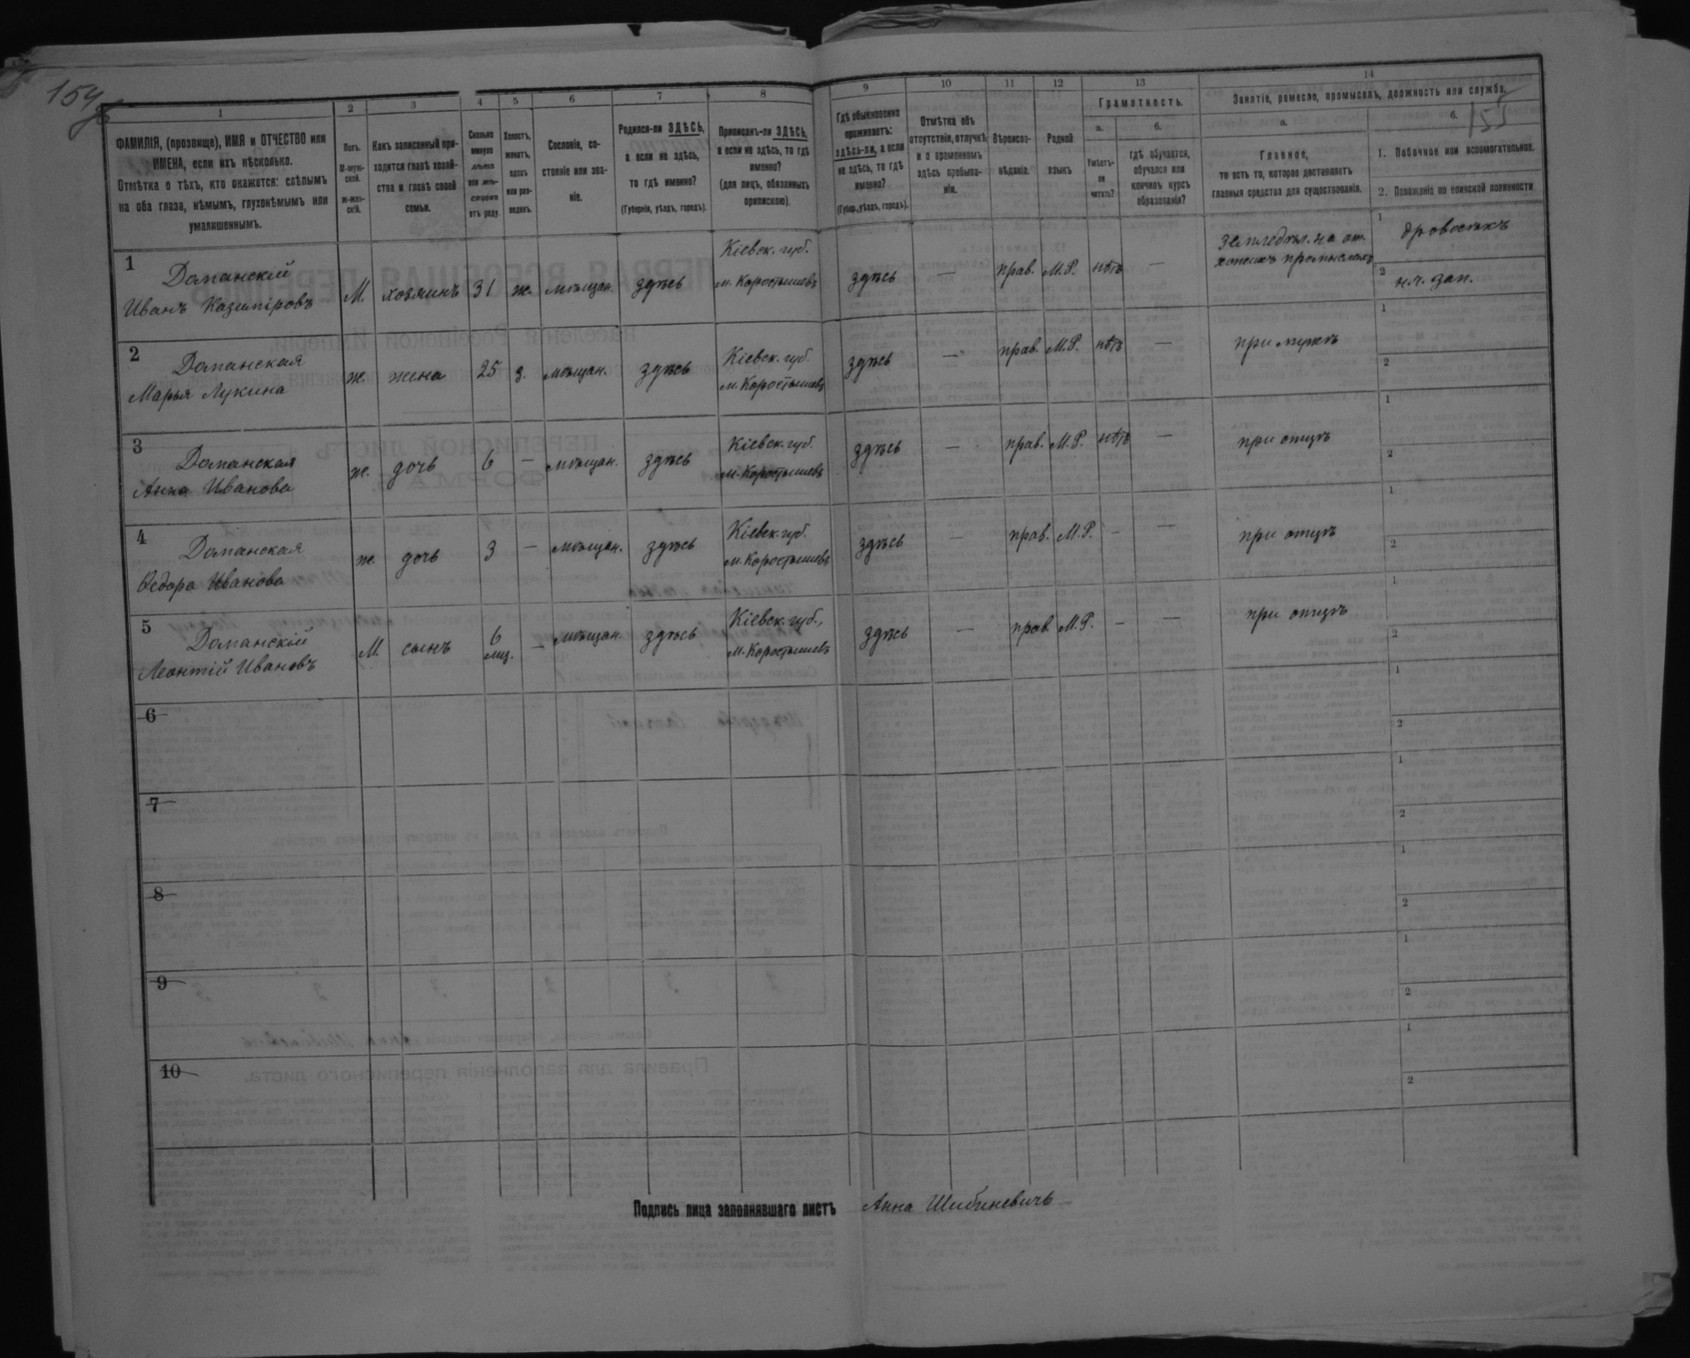 159
155
1 2 3 4 5 6 7 8 9 10 11 12 13 14
ФАМИЛІЯ, (прозвище), ИМЯ и ОТЧЕСТВО или
ИМЕНА, если ихъ нѣсколько.
Отмѣтка о тѣхъ, кто окажется: слѣпымъ
на оба глаза, нѣмымъ, глухонѣмымъ или
умалишеннымъ.
Полъ.
М-мужской.
ж-женскій.
Какъ записанный приходится
главѣ хозяйства
и главѣ своей
семьи.
Сколько
минуло
лѣтъ
или мѣсяцевъ
отъ роду.
Холостъ,
женатъ,
вдовъ
или разведенъ.
Сословіе, состояніе
или званіе.
Родился-ли ЗДѢСЬ,
а если не здѣсь,
то гдѣ именно?
(Губернія, уѣздъ, городъ).
Приписанъ-ли ЗДѢСЬ,
а если не здѣсь, то гдѣ
именно?
(для лицъ, обязанныхъ
припискою).
Гдѣ обыкновенно
проживаетъ:
здѣсь-ли, а если
не здѣсь, то гдѣ
именно?
(Губер., уѣздъ, городъ).
Отмѣтка объ
отсутствіи, отлучкѣ
и о временномъ
здѣсь пребываніи.
Вѣроисповѣданіе.
Родной
языкъ
Грамотность.
а.
Умѣетъ-ли
читать?
б.
гдѣ обучается,
обучался или
кончилъ курсъ
образованія?
Занятіе, ремесло, промыселъ, должность или служба.
а.
Главное,
то есть то, которое доставляетъ
главныя средства для существованія.
б.
1. Побочное или вспомогательное.
2. Положеніе по воинской повинности
1 Доманскій
Иванъ Казиміровъ
М. хозяинъ 31 ж. мѣщан. здѣсь
Кіевск. губ.
м. Коростышевъ
здѣсь — прав. М.Р. нѣтъ —
1 дровосѣкъ
2 н.ч. зап.
2 Доманская
Марья Лукина
ж. жена 25 з. мѣщан. здѣсь
Кіевск. губ.
м. Коростышевъ
здѣсь — прав. М.Р. нѣтъ — при мужѣ
1
2
3 Доманская
Анна Иванова
ж. дочь 6 — мѣщан. здѣсь
Кіевск. губ.
м. Коростышевъ
здѣсь — прав. М.Р. нѣтъ — при отцѣ
1
2
4 Доманская
Ѳедора Иванова
ж. дочь 3 — мѣщан. здѣсь
Кіевск. губ.
м. Коростышевъ
здѣсь — прав. М.Р. - — при отцѣ
1
2
5 Доманскій
Леонтій Ивановъ
М сынъ 6 — мѣщан. здѣсь
Кіевск. губ.,
м. Коростышевъ
здѣсь — прав. М.Р. - — при отцѣ
1
2
6
1
2
7
1
2
8
1
2
9
1
2
10
1
2
Подпись лица заполнявшаго листъ Анна